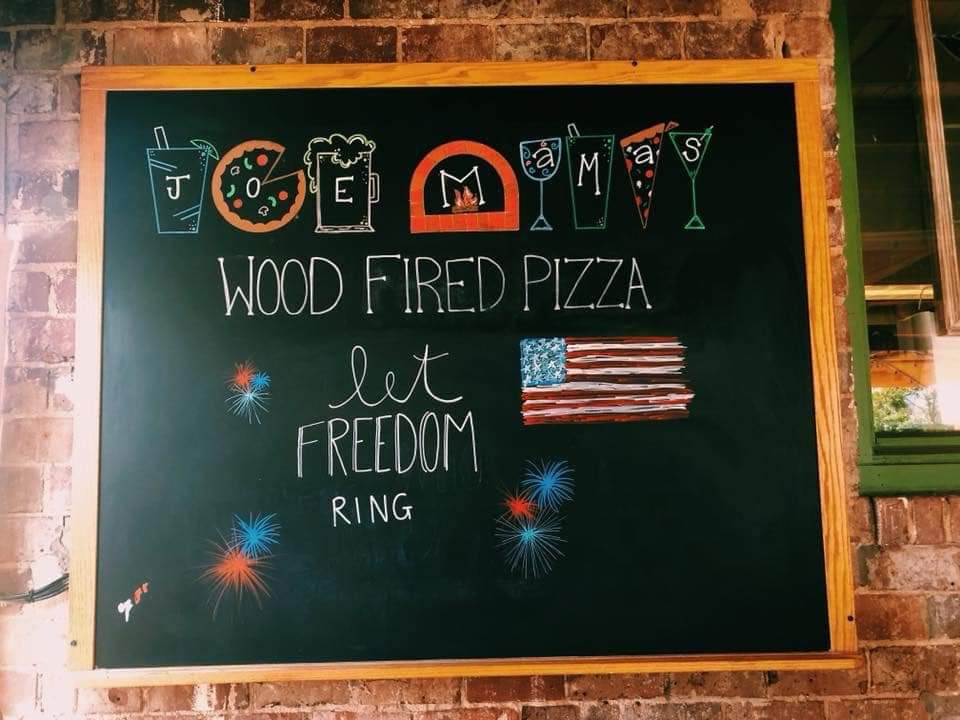 JOE MaMaS
WOOD FIRED PIZZA
let
FREEDOM
RING